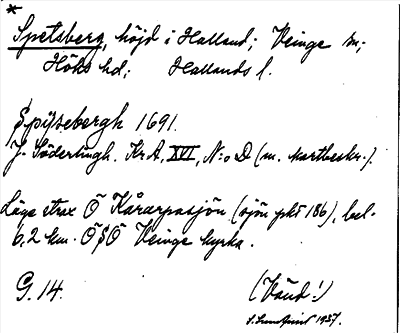 *
Spetsberg, höjd i Halland; Veinge sn;
Höks hd; Hallands l.
Spijsebergh 1691.
J. Söderlingh. Kr.A, XVI, N:o D (m. kartbeskr.).
Läge strax Ö Kårarpasjön (sjön pkt 186), bel.
6,2 km. ÖSÖ Veinge kyrka.
G. 14. (Vänd!)
1937.